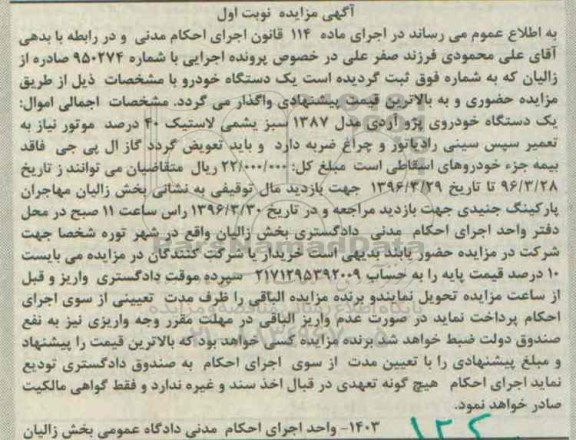 آگهی مزایده نوبت اول
به اطلاع عموم می رساند در اجرای ماده ۱۱۴ قانون اجرای احکام مدنی و در رابطه با بدهی
آقای علی محمودی فرزند صفر علی در خصوص پرونده اجرایی با شماره ۹۵۰۲۷۴ صادره از
زالیان که به شماره فوق ثبت گردیده است یک دستگاه خودرو با مشخصات ذیل از طریق
مزایده حضوری و به بالاترین قیمت پیشنهادی واگذار می گردد. مشخصات اجمالی اموال:
یک دستگاه خودروی پژو آردی مدل ۱۳۸۷ سبز یشمی لاستیک ۴۰ درصد موتور نیاز به
تعمیر سپس سینی رادیاتور و چراغ ضربه دارد و باید تعویض گردد گاز ال پی جی فاقد
بیمه جزء خودروهای اسقاطی است مبلغ کل: ۲۲/۰۰۰/۰۰۰ ریال متقاضیان می توانند ز تاریخ
۹۶/۳/۲۸ تا تاریخ ۱۳۹۶/۳/۲۹ جهت بازدید مال توقیفی به نشانی بخش زالیان مهاجران
پارکینگ جنیدی جهت بازدید مراجعه و در تاریخ ۱۳۹۶/۳/۳۰ راس ساعت ۱۱ صبح در محل
دفتر واحد اجرای احکام مدنی دادگستری بخش زالیان واقع در شهر توره شخصا جهت
شرکت در مزایده حضور یابند بدیهی است خریدار یا شرکت کنندگان در مزایده می بایست
۱۰ درصد قیمت پایه را به حساب ۲۱۷۱۲۹۵۳۹۲۰۰۹ سپرده موقت دادگستری واریز و قبل
از ساعت مزایده تحویل نمایندو برنده مزایده الباقی را ظرف مدت تعیینی از سوی اجرای
احکام پرداخت نماید در صورت عدم واریز الباقی در مهلت مقرر وجه واریزی نیز به نفع
صندوق دولت ضبط خواهد شد برنده مزایده کسی خواهد بود که بالاترین قیمت را پیشنهاد
و مبلغ پیشنهادی را با تعیین مدت از سوی اجرای احکام به صندوق دادگستری تودیع
نماید اجرای احکام هیچ گونه تعهدی در قبال اخذ سند و غیره ندارد و فقط گواهی مالکیت
صادر خواهد نمود.
۱۴۰۳- واحد اجرای احکام مدنی دادگاه عمومی بخش زالیان
ParsNamadData